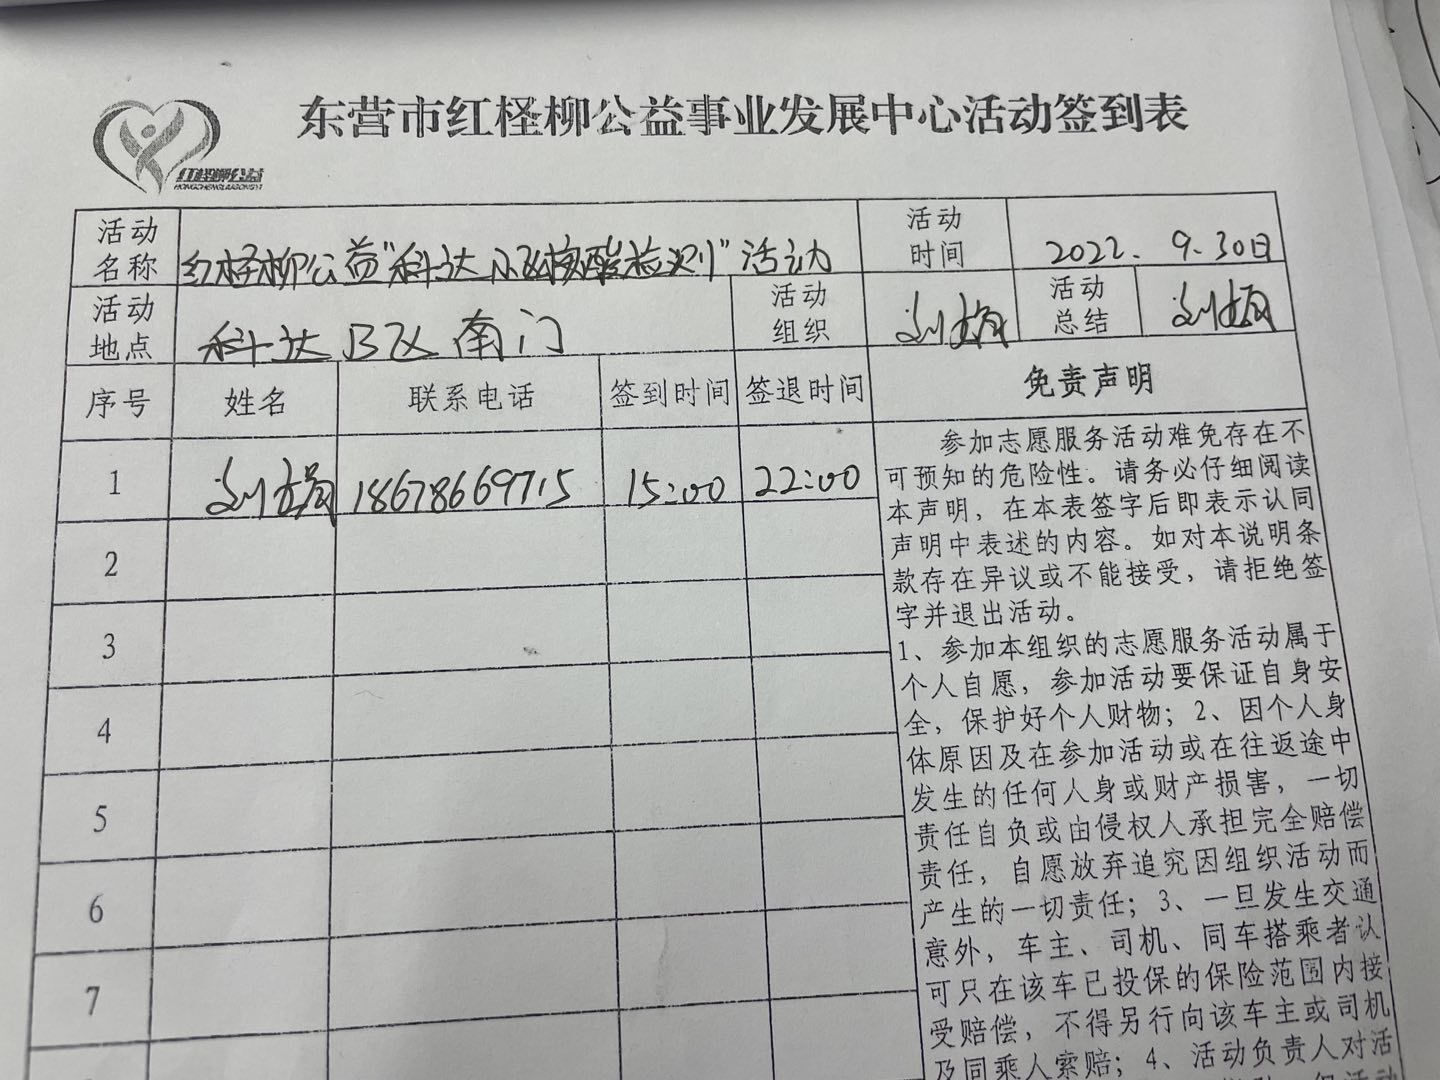 东营市红柽柳公益事业发展中心活动签到表
红柽柳公益
HONGCHENGLIUGONGYI
活动名称
红柽柳公益"科达小区核酸检测"活动
活动时间
2022.9.30日
活动地点
科达B区南门
活动组织
刘娟
活动总结
刘娟
序号 姓名 联系电话 签到时间 签退时间 免责声明
1 刘娟 18678669715 15:00 22:00
2
3
4
5
6
7
参加志愿服务活动难免存在不
可预知的危险性。请务必仔细阅读
本声明，在本表签字后即表示认同
声明中表述的内容。如对本说明条
款存在异议或不能接受，请拒绝签
字并退出活动。
1、参加本组织的志愿服务活动属于
个人自愿，参加活动要保证自身安
全，保护好个人财物；2、因个人身
体原因及在参加活动或在往返途中
发生的任何人身或财产损害，一切
责任自负或由侵权人承担完全赔偿
责任，自愿放弃追究因组织活动而
产生的一切责任；3、一旦发生交通
意外，车主、司机、同车搭乘者认
可只在该车已投保的保险范围内接
受赔偿，不得另行向该车主或司机
及同乘人索赔；4、活动负责人对活